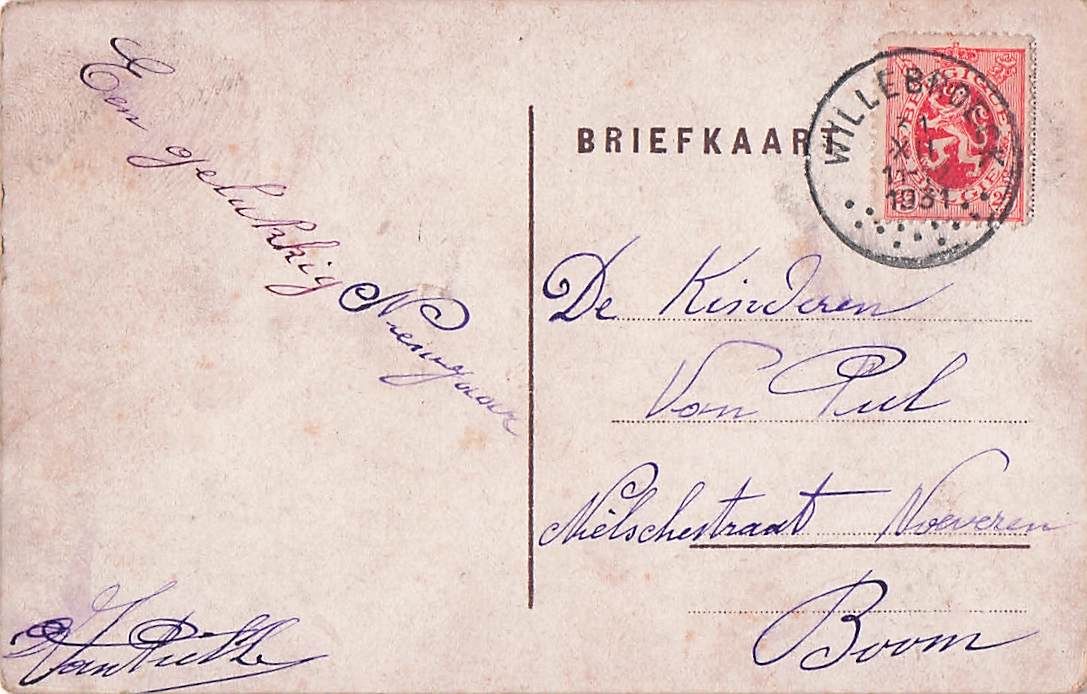 Een gelukkig Nieuwjaar
BRIEFKAART
WILLEBROECK
1931
BELGIQUE
BELGIE
De Kinderen
Van Pul
Nielschestraat Noeveren
Boom